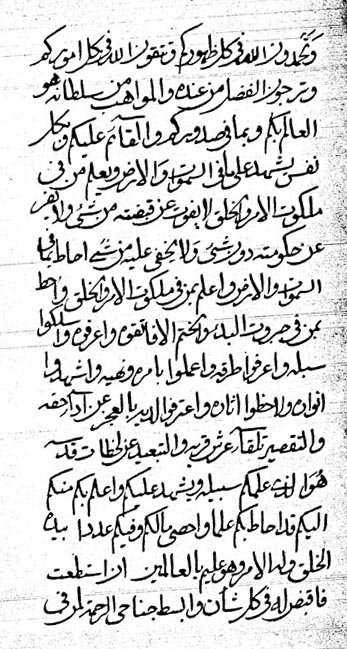 وتحمدون الله في كل ظهوركم وتتقون الله في كل اموركم
وترجون الفضل من عنده والمواهب من سلطانه هو
العالم بكم وبما في صدوركم والقائم عليكم وبكل
نفس يشهد على ما في السموات والارض ويعلم من في
ملكوت الامر والخلق لا يفوت عن قبضته من شئ ولا يفر
عن حكومته دون شئ ولا يخفى عليه من شئ احاط بما في
السموات والارض واعلم بمن في ملكوت الامر والخلق واحاط
بمن في جبروت البدء والختم الا فاتقوه واعرفوه واسلكوا
سبله واعرفوا طرقه واعملوا بامره ونهيه واشهدوا
انواره ولاحظوا اثاره واعترفوا لديه بالعجز عن اداء حقه
والتقصير تلقاء عرش قربه والتبعيد عن لحظات قدسه
هو الذي علمكم سبيله ويشهد عليكم واعلم بكم منكم
اليكم قد احاط بكم علما واحصى مالكم وفيكم عددا بيده
الخلق وله الامر وهو عليم بالعالمين ان استطعت
فاقبض له في كل شأن وابسط جناحي الرحمة لمن في